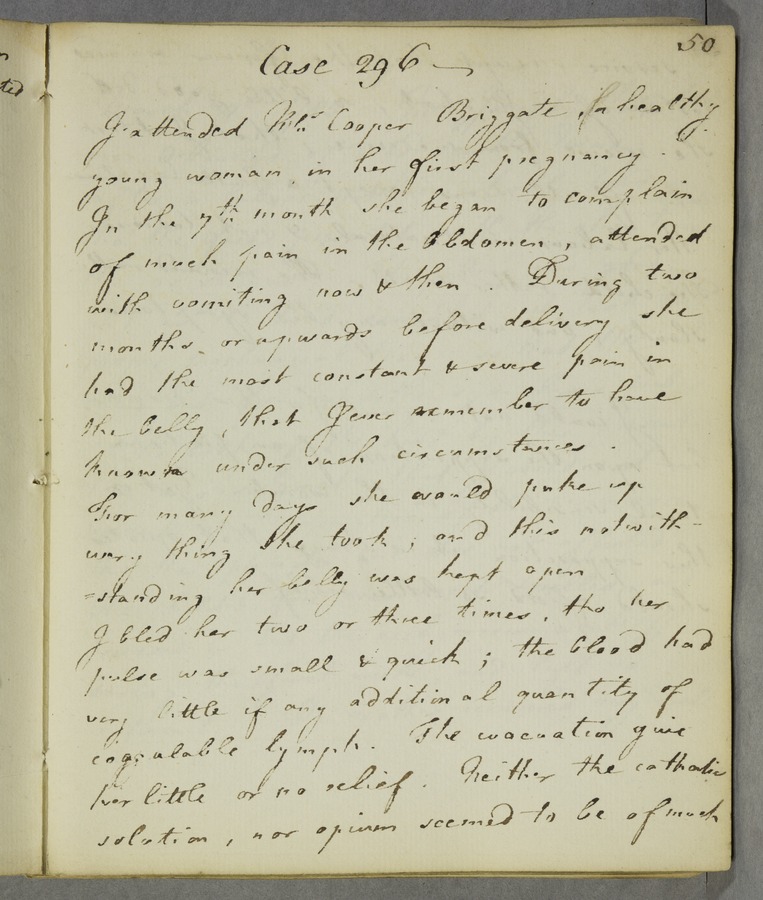 50
Case 296
I attended Mrs Cooper Briggate, a healthy
young woman, in her first pregnancy.
In the 7th month she began to complain
of much pain in the Abdomen, attended
with vomiting now & then. During two
months or upwards before delivery she
had the most constant & severe pain in
the belly, that I ever remember to have
known under such circumstances.
For many days she would puke up
every thing she took; and this notwith-
=standing her belly was kept open
I bled her two or three times, tho her
pulse was small & quick; the blood had
very little if any additional quantity of
coagulable lymph. The evacuation give
her little or no relief. Neither the cathatic
solution, nor opium seemed to be of much
ted